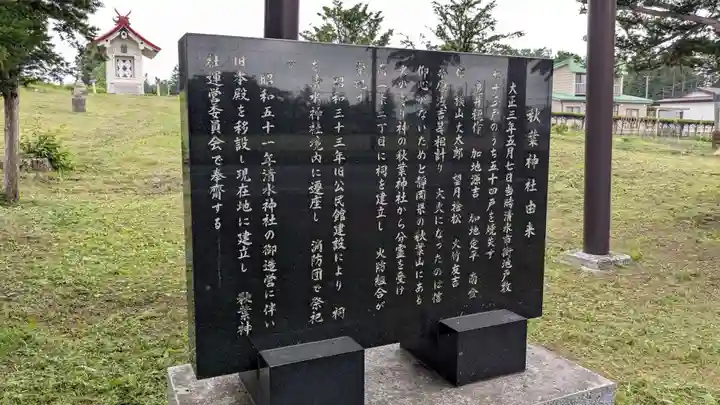 秋葉神社由来
大正三年五月七日当時清水市街地戸数
十三戸のうち五十四戸を焼失す
加地源吉 加地定平 南金
松山丈太郎 望月捨松 大竹友吉
等相計り 大火になったのは信
仰心がないためと静岡県の秋葉山にある
神の秋葉神社から分霊を受け
丁目に祠を建立し 火防組合が
昭和三十三年旧公民館建設により 祠
を清水神社境内に遷座し 消防団で祭祀
昭和五十一年清水神社の御造営に伴い
旧本殿を移設し現在地に建立し 秋葉神
社運営委員会で奉斎する